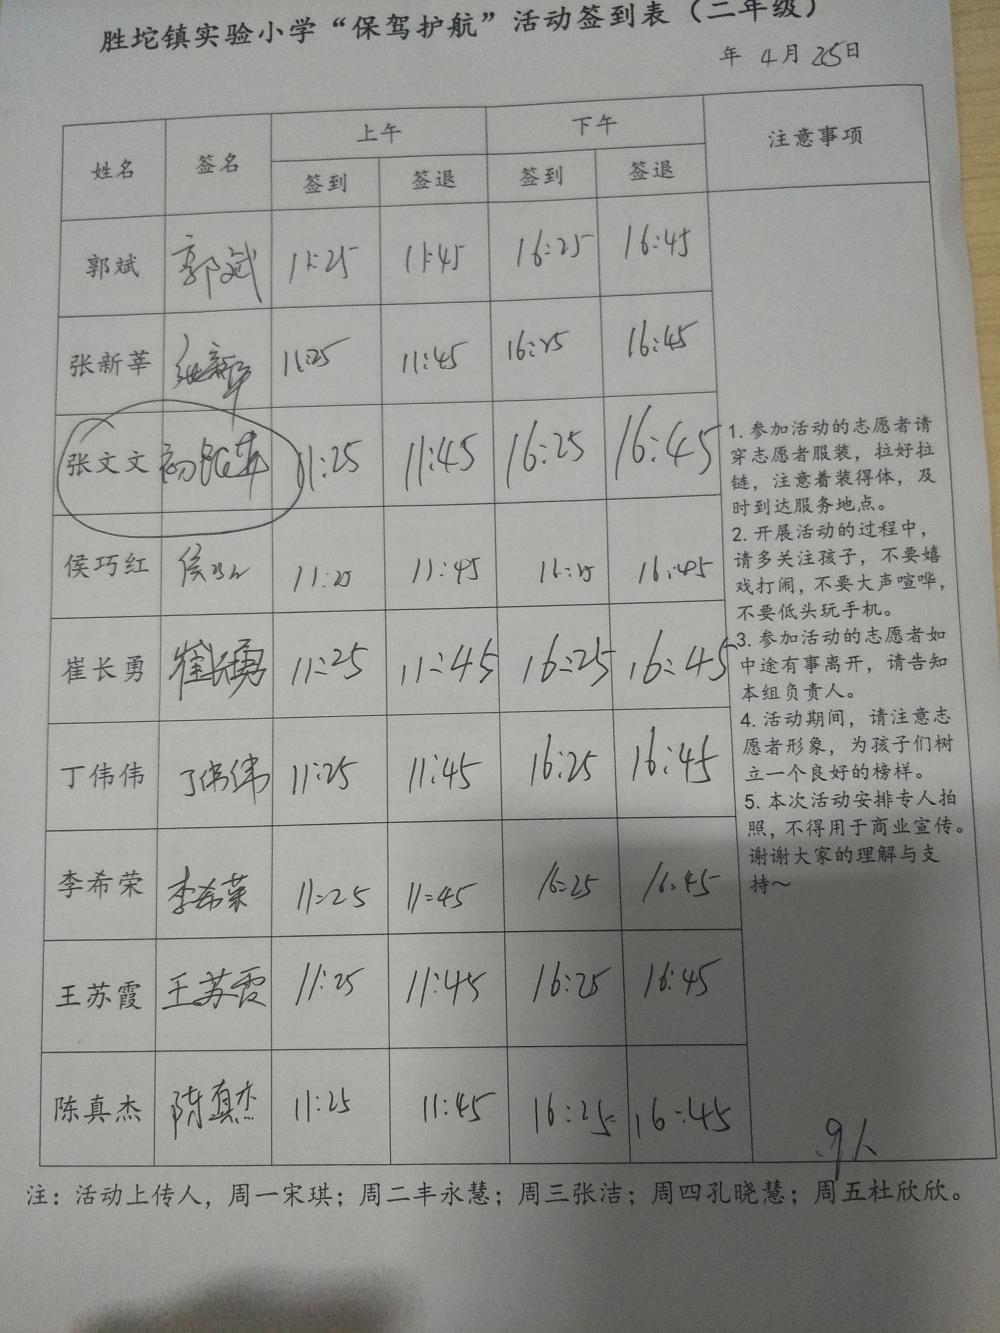 胜坨镇实验小学“保驾护航”活动签到表（二年级）
年 4月25日
姓名 签名 上午 下午 注意事项
签到 签退 签到 签退
郭斌 郭斌 11:25 11:45 16:25 16:45
张新莘 张新莘 11:25 11:45 16:25 16:45
张文文 11:25 11:45 16:25 16:45
侯巧红 侯巧红 11:25 11:45 16:25 16:45
崔长勇 崔长勇 11:25 11:45 16:25 16:45
丁伟伟 丁伟伟 11:25 11:45 16:25 16:45
李希荣 李希荣 11:25 11:45 16:25 16:45
王苏霞 王苏霞 11:25 11:45 16:25 16:45
陈真杰 陈真杰 11:25 11:45 16:25 16:45
1. 参加活动的志愿者请
穿志愿者服装，拉好拉
链，注意着装得体，及
时到达服务地点。
2. 开展活动的过程中，
请多关注孩子，不要嬉
戏打闹，不要大声喧哗，
不要低头玩手机。
3. 参加活动的志愿者如
中途有事离开，请告知
本组负责人。
4. 活动期间，请注意志
愿者形象，为孩子们树
立一个良好的榜样。
5. 本次活动安排专人拍
照，不得用于商业宣传。
谢谢大家的理解与支
持～
9人
注：活动上传人，周一宋琪；周二丰永慧；周三张洁；周四孔晓慧；周五杜欣欣。